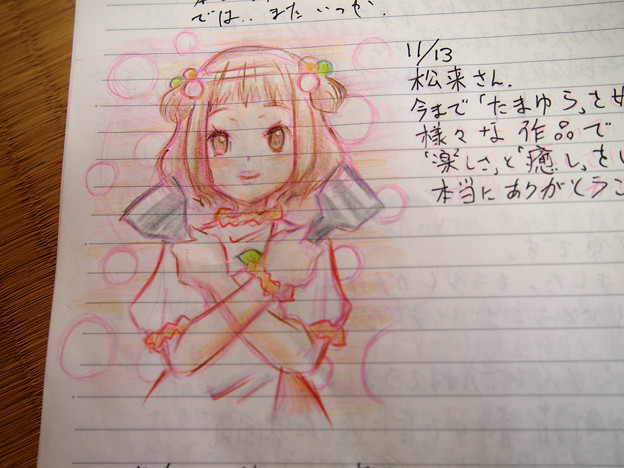 では.. また いつか.
11/13
松来さん.
今まで「たまゆら」を
様々な作品で
「楽しさ」と「癒し」を
本当にありがとうご